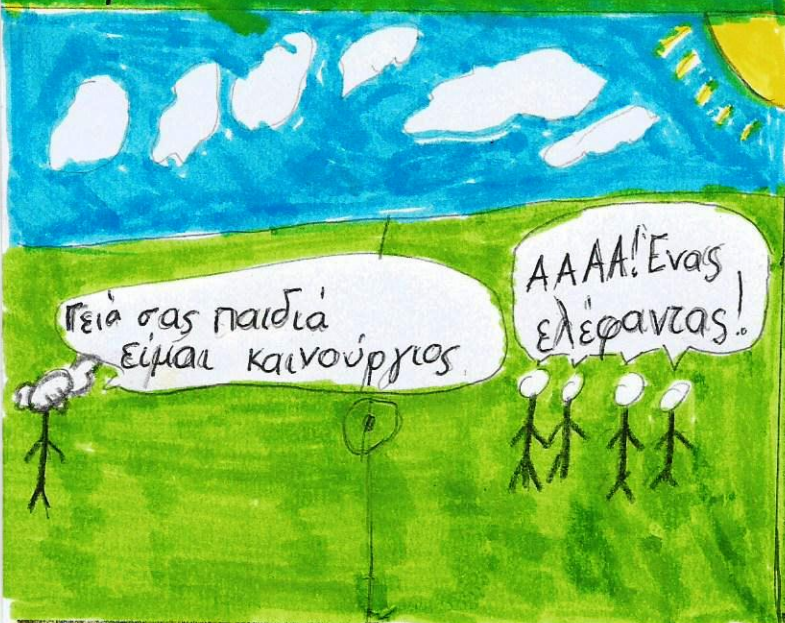 Γειά σας παιδιά
είμαι καινούργιος
ΑΑΑΑ! Ένας
ελέφαντας!